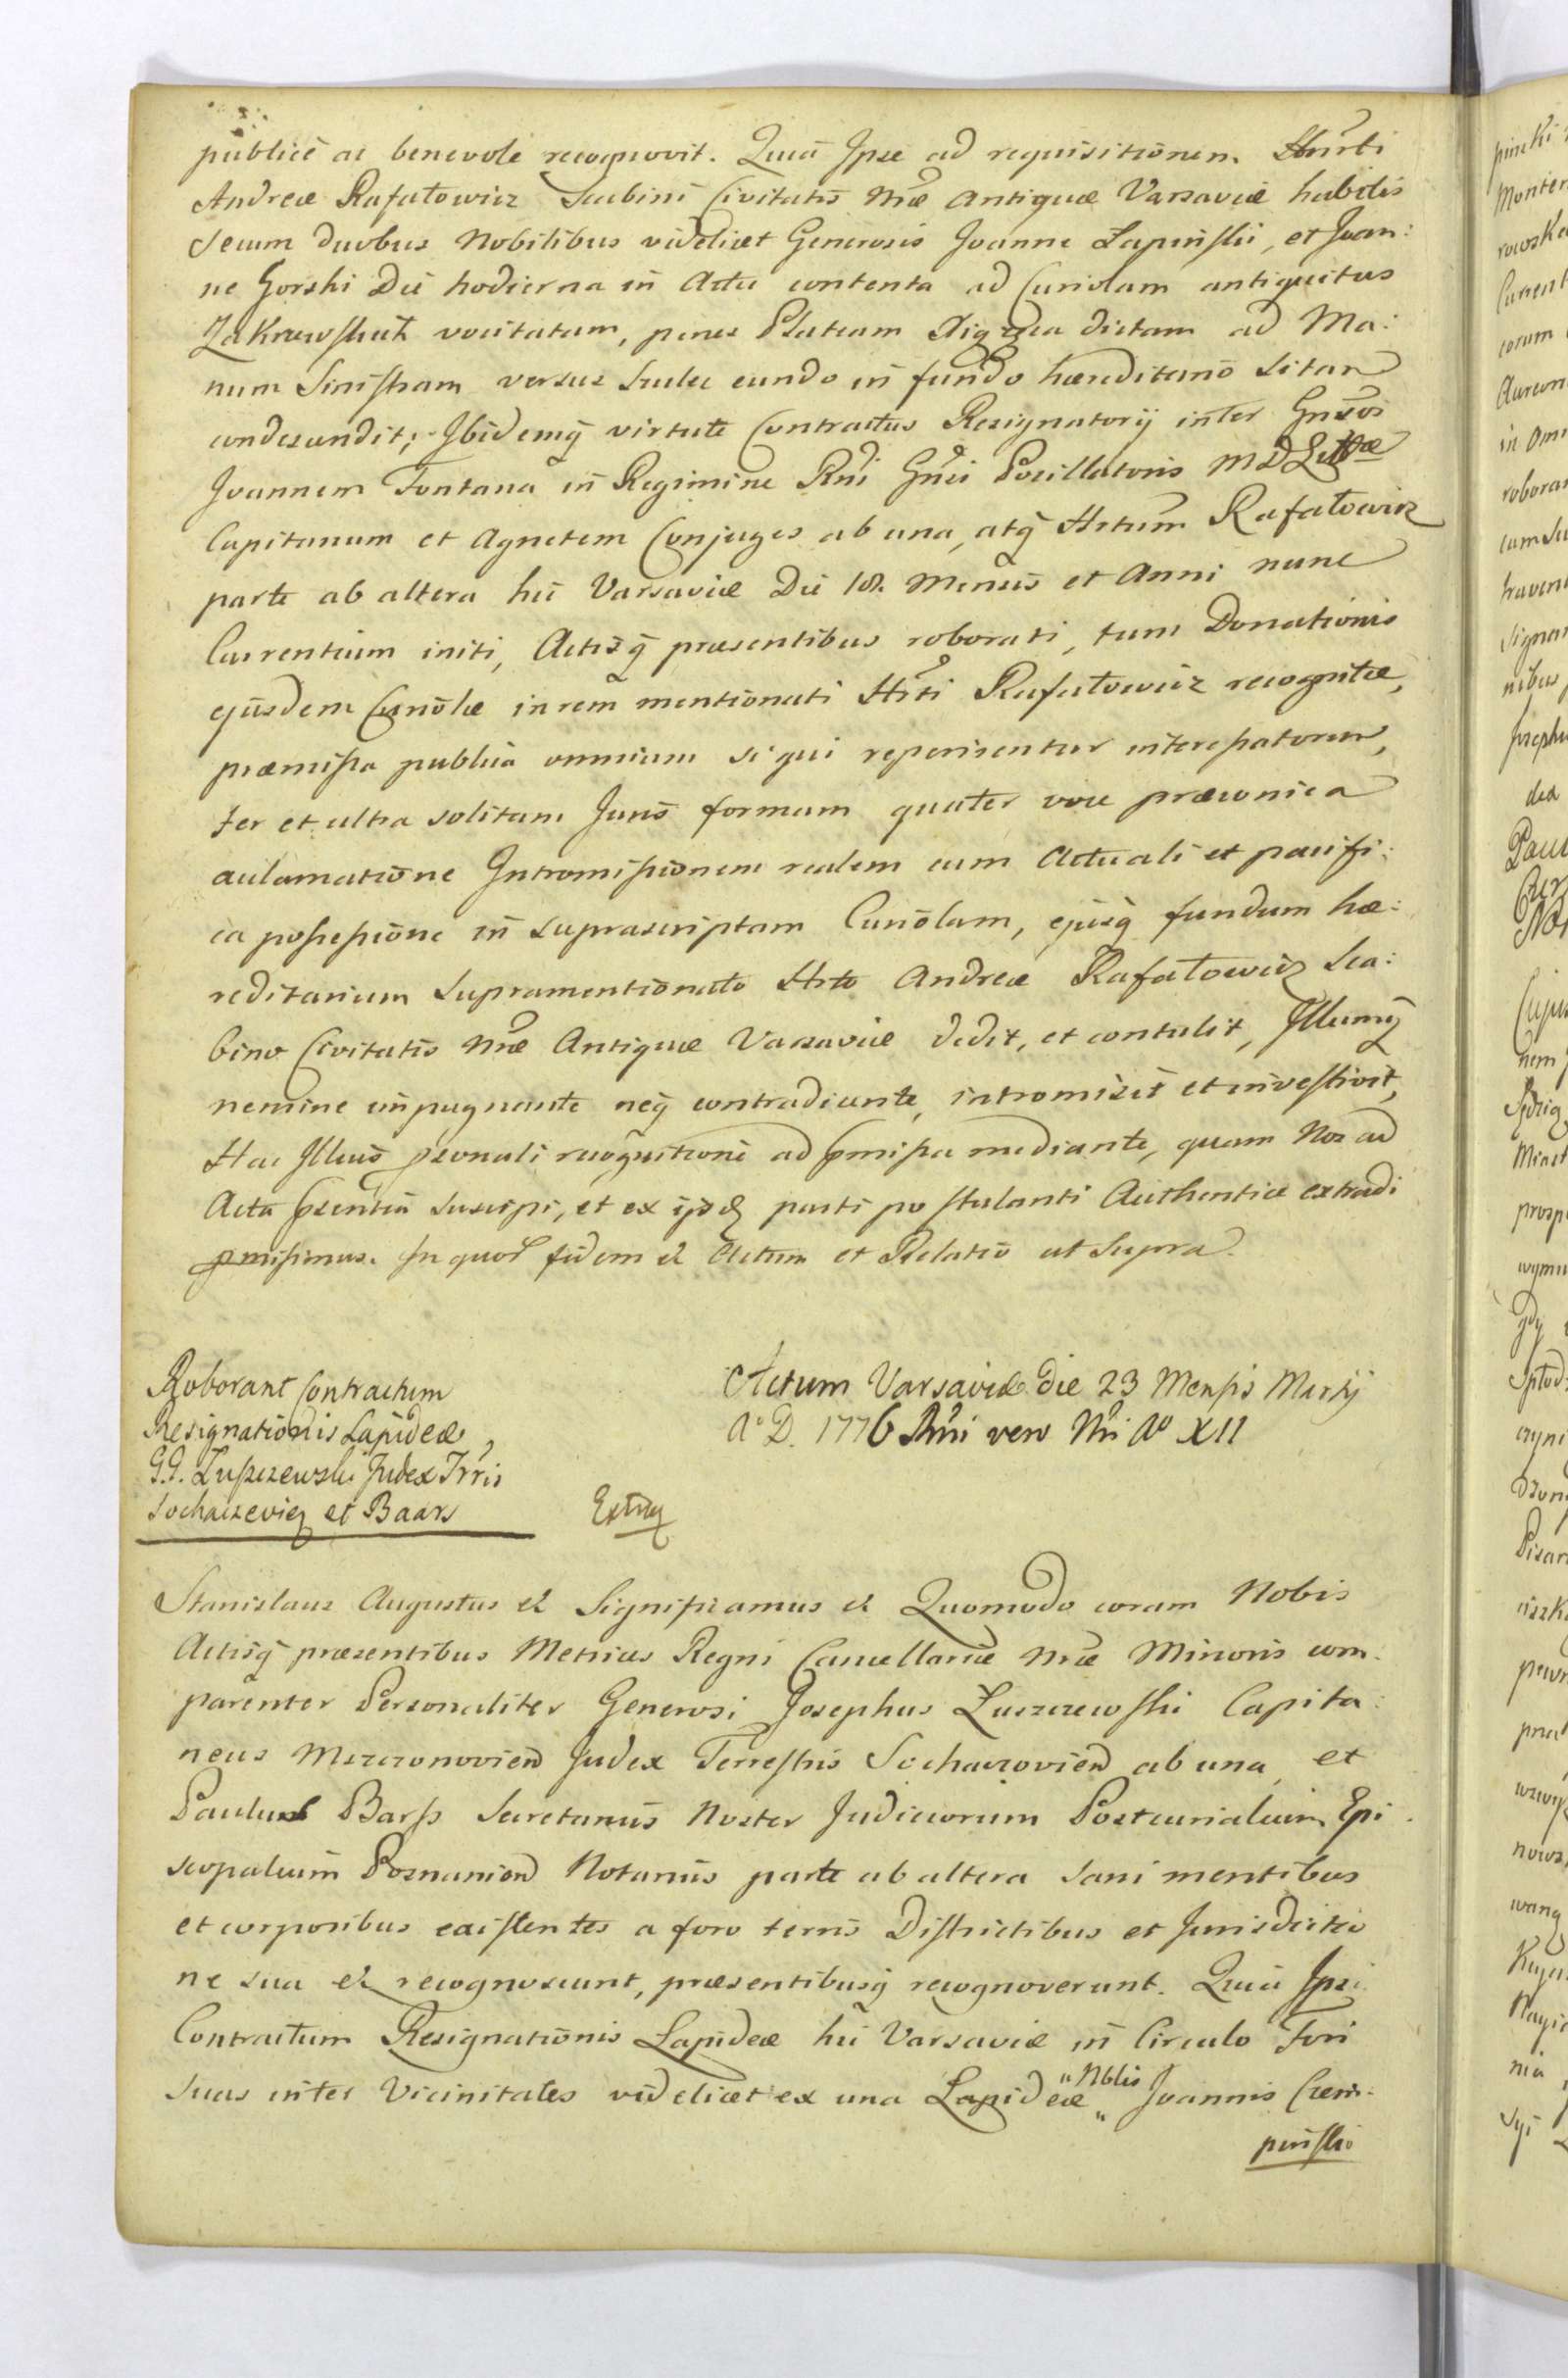 publice ac benevole recognovit. Quia Ipse ad requisitionem Hnrti
Andreæ Rafałowicz Scabini Civitatis Nræ Antiquæ Varsaviæ habitis
secum duobus Nobilibus videlicet Generosis Joanne Lapinski, et Joan:
ne Gorski Die hodierna in Actu contenta ad Curiolam antiquitus
vocitatam, penes Plateam dictam ad Ma:
num Sinistram versus eundo in fundo hæreditario sitam
condescendit; Ibidemq virtute Contractus Resignatorij inter Gnsos
Joannem Fontana in Regimine Rndi Gnsi Pocillatoris M D Littvæ
Capitanum et Agnetem Conjuges ab una, atq Hrtum Rafałowicz
parte ab altera hic Varsaviæ Die Mensis et Anni nunc
Currentium initi, Actisq præsentibus roborati, tum Donationis
ejusdem Curiolæ in rem mentionati Hrti Rafałowicz recognitæ,
præmissa publica omnium si qui reperirentur interessatorum,
ter et ultra solitam Juris formam quater voce præconica
acclamatione Intromissionem realem cum Actuali et pacifi:
ca possessione in suprascriptam Curiolam, ejusq fundum hæ:
reditarium supramentionato Hrto Andreæ Rafałowicz Sca:
bino Civitatis Nræ Antiquæ Varsaviæ dedit, et contulit, Illumq
nemine impugnante neq contradicente, intromisit et investivit,
Hac Illius psonali recognitione ad pmissa mediante, quam Nos ad
Acta psentia suscipi, et ex ijsd parti postulanti Authentice extradi
pmisimus. In quor fidem & Actum et Relatio ut Supra.
Roborant Contractum
Resignationis Lapideæ
G.G. Łuszczewski Judex Trris
Sochaczevien et Baars
Actum Varsaviæ die 23 Mensis Martij
A° D. 1776 Rni vero Nri A° XII
Extra
Stanislaus Augustus & Significamus & Quomodo coram Nobis
Actisq præsentibus Metrices Regni Cancellariæ Nræ Minoris com:
parentes Personaliter Generosi Josephus Łuszczewski Capita:
neus Mszczonovien Judex Terrestris Sochaczovien ab una, et
Paulus Barss Secretarius Noster Judiciorum Postcurialium Epi:
scopalium Posnanien Notarius parte ab altera sani mentibus
et corporibus existentes a foro terris Districtibus et Jurisdictio
ne sua & recognoscunt, præsentibusq recognoverunt. Quia Ipsi
Contractum Resignationis Lapideæ hic Varsaviæ in Circulo Fori
suas inter Vicinitates videlicet ex una Lapideæ „Nblis Joannis Czem:
pinski